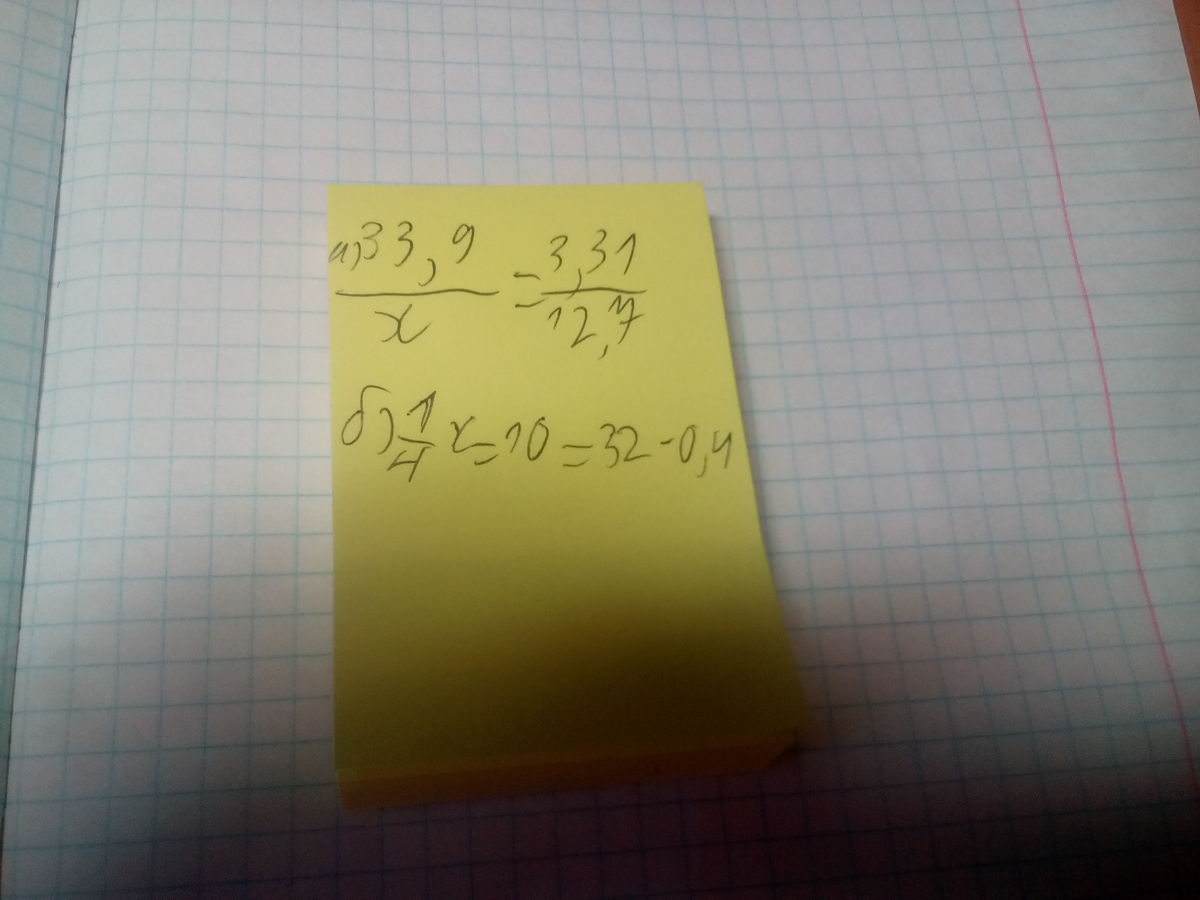 а) 33,9 / x = 3,31 / 12,7
б) 1/4 x = 10 = 32 - 0,4